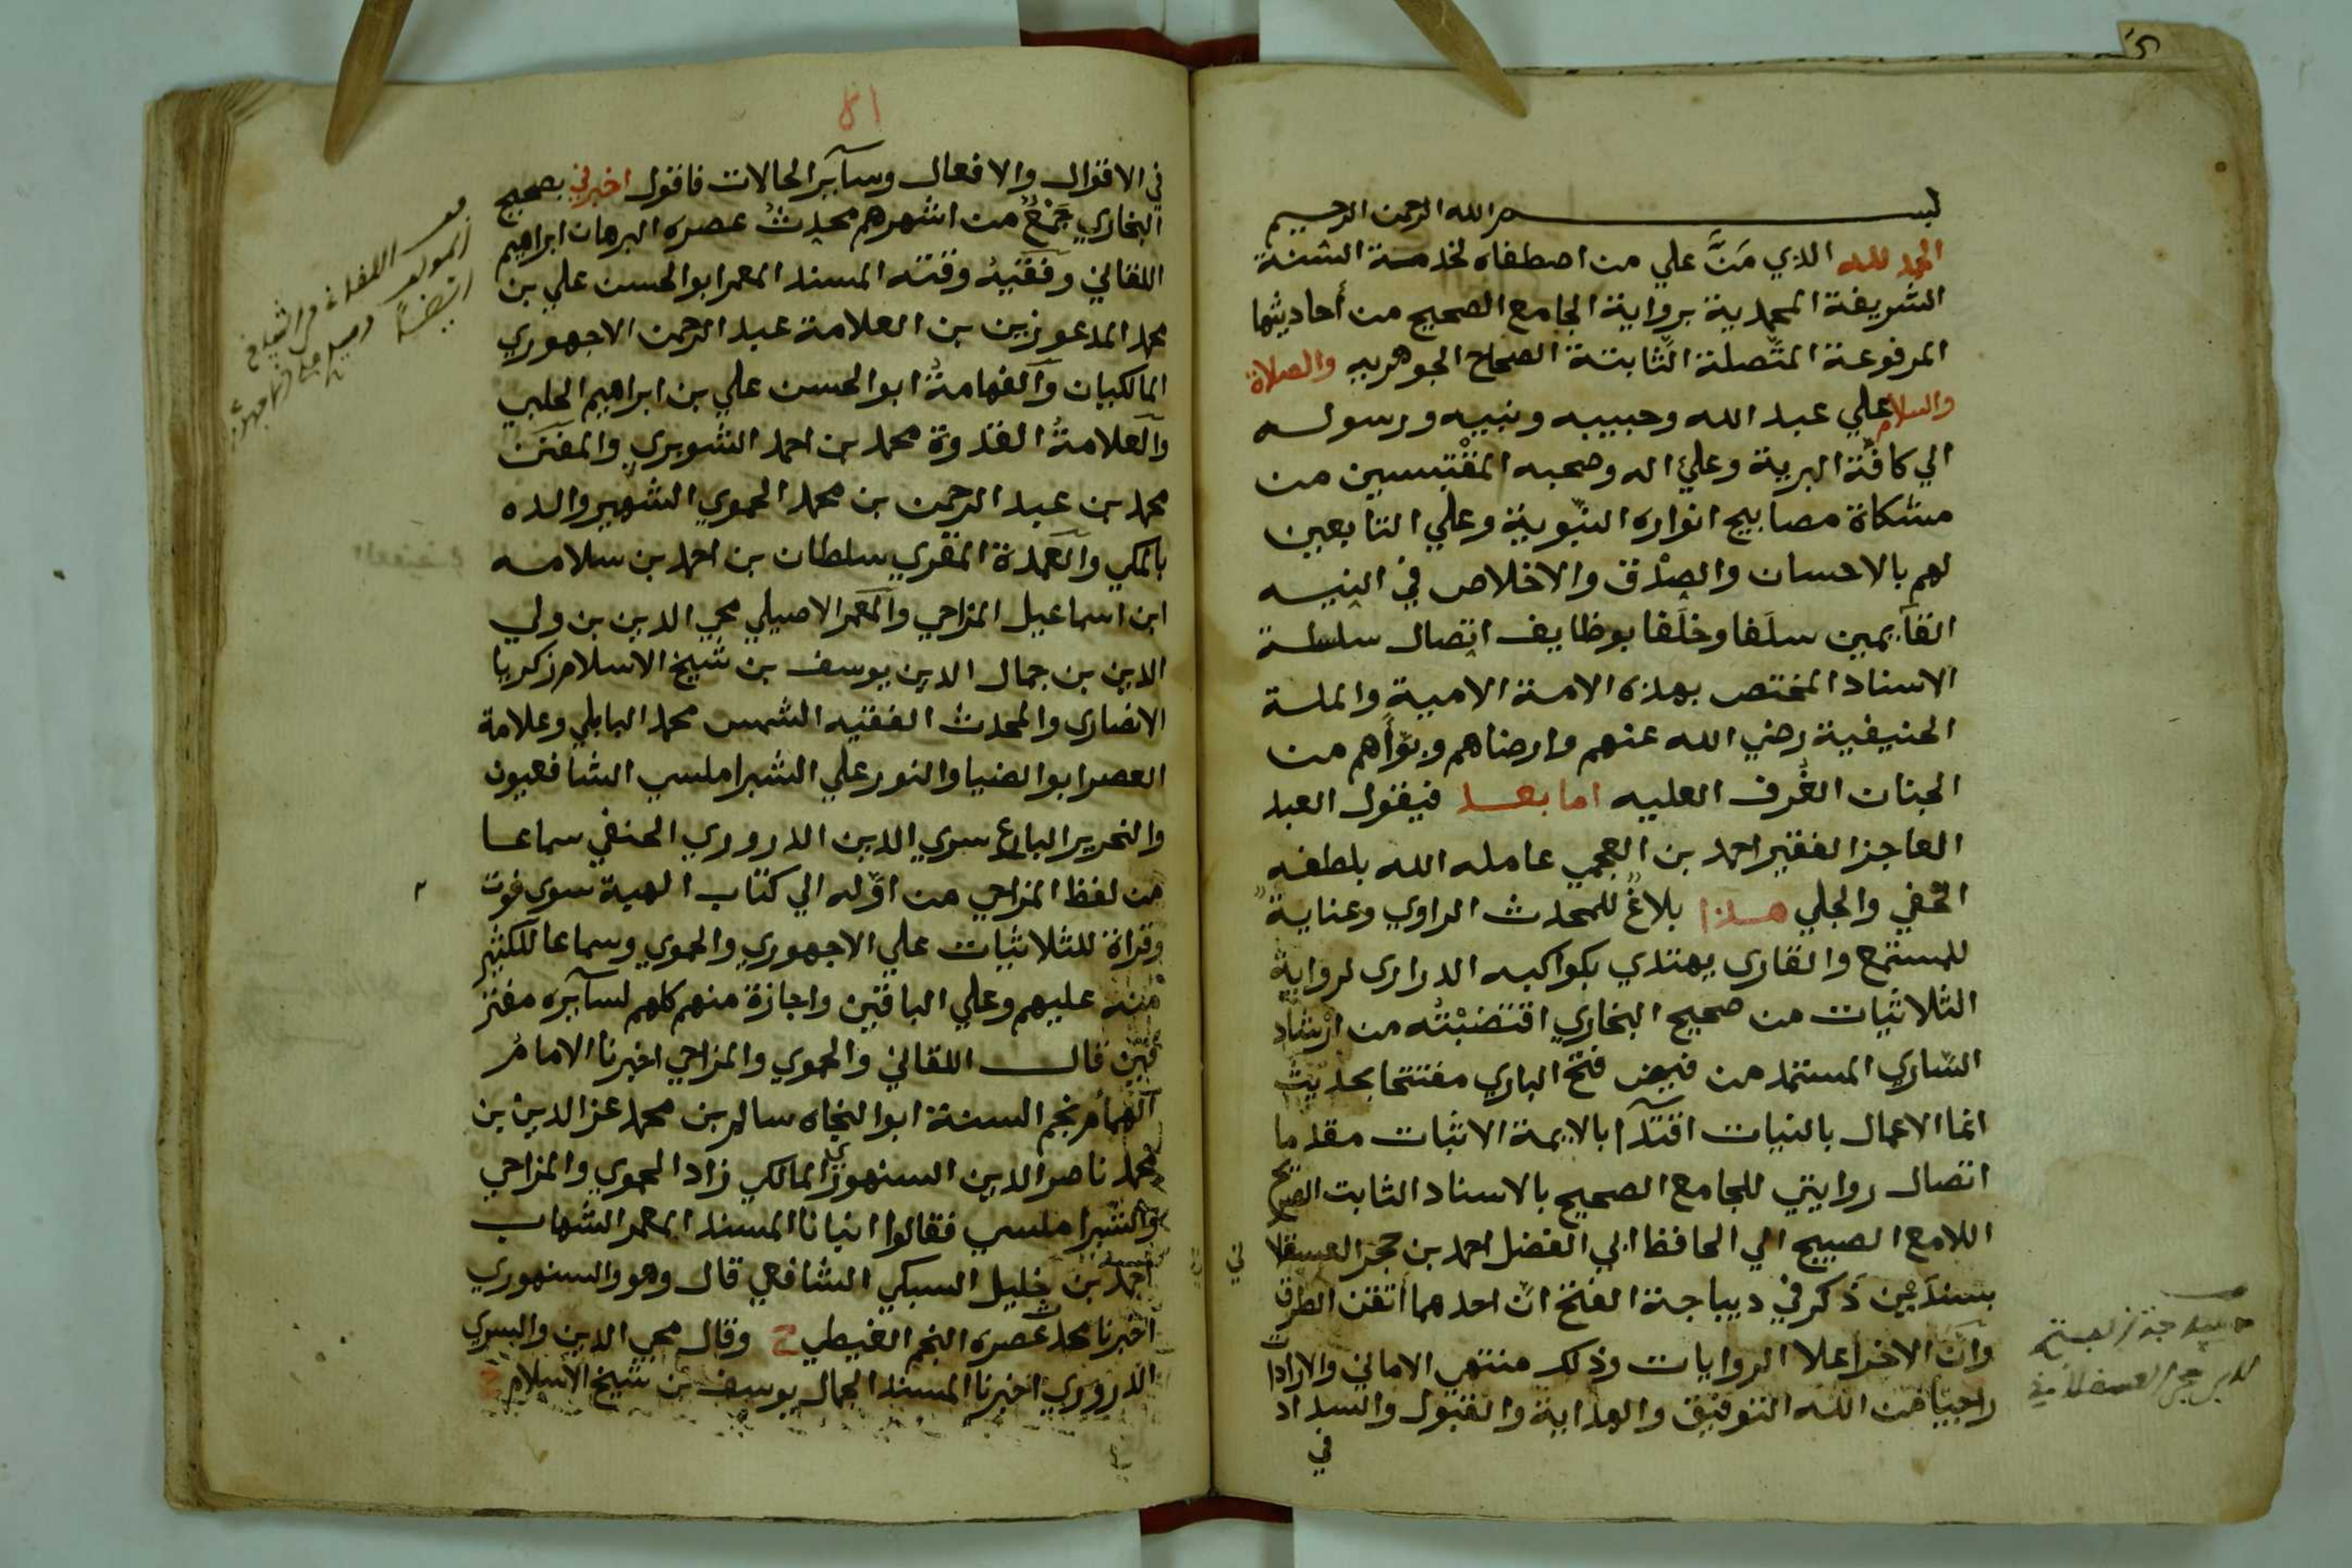 بسم الله الرحمن الرحيم
الحمد لله الذي مَنَّ علي من اصطفاه لخدمة السنة
الشريفة المحمدية برواية الجامع الصحيح من أحاديثها
المرفوعة المتصلة الثابتة الصحاح الجوهريه والصلاة
والسلام علي عبد الله وحبيبه ونبيه ورسوله
الي كافة البرية وعلي اله وصحبه المقتبسين من
مشكاة مصابيح انواره النبوية وعلي التابعين
لهم بالاحسان والصدق والاخلاص في النيه
القآيمين سلَفا وخلَفا بوظايف اتصال سلسلة
الاسناد المختص بهذه الامة الامية والملة
الحنيفية رضي الله عنهم وارضاهم وبوأهم من
الجنات الغُرف العليه اما بعد فيقول العبد
العاجز الفقير احمد بن العجمي عامله الله بلطفه
الخفي والجلي هذا بلاغ للمحدث الراوي وعناية
للمستمع والقارى يهتدي بكواكبه الدرارى لرواية
الثلاثيات من صحيح البخاري اقتضبْتُه من ارشاد
الساري المستمد من فيض فتح الباري مفتتحا بحديث
انما الاعمال بالنيات اقتدآ بالايمة الاثبات مقدما
اتصال روايتي للجامع الصحيح بالاسناد الثابت الصريح
اللامع الصبيح الي الحافظ ابي الفضل احمد بن حجر العسقلا
ني
بسندَيْن ذَكر في ديباجة الفتح انّ احدهما أتقن الطرق
وانّ الاخر أعلا الروايات وذلك منتهي الاماني والارادات
راجيا من الله التوفيق والهداية والقبول والسداد
في
ديباجة الفتح
لابن حجر العسقلاني
١٨
في الاقوال والافعال وسآير الحالات فاقول اخبرني بصحيح
البخاري جَمْعٌ من اشهرهم محدثُ عصره البرهان ابراهيم
اللقاني وفقيهُ وقته المسند المعمر ابو الحسن علي بن
محمد المدعو زين بن العلامة عبد الرحمن الاجهوري
المالكيان والفهامةُ ابو الحسن علي بن ابراهيم الحلبي
والعلامةُ القدوة محمد بن احمد الشوبري والمفنن
محمد بن عبد الرحمن بن محمد الحموي الشهير والده
بالمكي والعمدة المقري سلطان بن احمد بن سلامه
ابن اسماعيل المزاحي والمعمر الاصيلي محي الدين بن ولي
الدين بن جمال الدين يوسف بن شيخ الاسلام زكريا
الانصاري والمحدث الفقيه الشمس محمد البابلي وعلامة
العصر ابو الضيا والنور علي الشبراملسي الشافعيون
والنحرير البارع سري الدين الدروري الحنفي سماعا
من لفظ المزاحي من اوّله الي كتاب الهبة سوى فوت
وقراة للثلاثيات علي الاجهوري والحموي وسماعا للكثير
منه عليهم وعلي الباقين واجازة منهم كلهم لسآيره مفتر
قين قال اللقاني والحموي والمزاحي اخبرنا الامامُ
الهمامُ نجم السنة ابو النجاه سالم بن محمد عز الدين بن
محمد ناصر الدين السنهوري المالكي زاد الحموي والمزاحي
والشبراملسي فقالوا انبانا المسند المعمر الشهاب
احمد بن خليل السبكي الشافعي قال وهو والسنهوري
اخبرنا محدث عصره النجم الغيطي ح وقال محي الدين والسري
الدروري اخبرنا المسند الجمال يوسف بن شيخ الاسلام